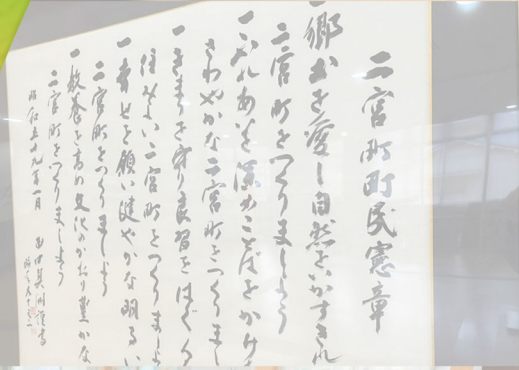 二宮町町民憲章
一郷土を愛し自然をいかすきれ
二宮町をつくりましよう
一ふれあいを深めことばをかけ
さわやかな二宮町をつくりまし
一きまりを守り良習をはぐくみ
住みよい二宮町をつくりましよ
一幸せを願い健やかな明るい
二宮町をつくりましよう
一教養を高め文化のかおり豊かな
二宮町をつくりましよう
昭和五十九年一月